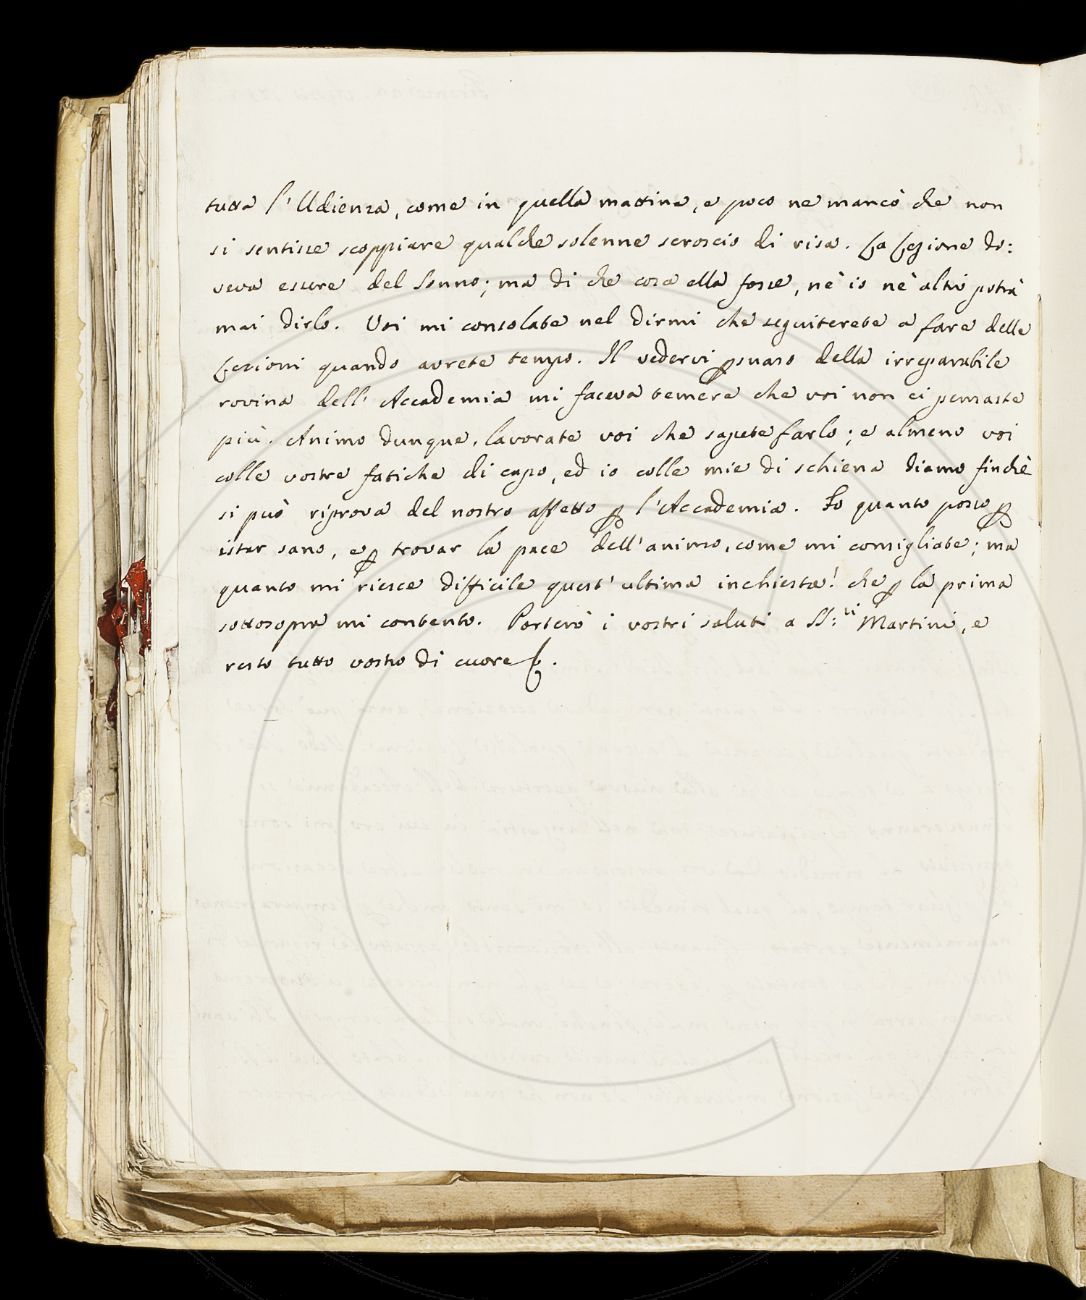 tutta l'Udienza, come in quella mattina, e poco ne mancò che non
si sentisse scoppiare qualche solenne scroscio di risa. La Lezione do:
veva essere del Sonno; ma di che cosa ella fosse, nè io nè altri potrà
mai dirlo. Voi mi consolate nel dirmi che seguiterete a fare delle
Lezioni quando avrete tempo. Il vedervi ꝑsuaso della irreparabile
rovina dell'Accademia mi faceva temere che voi non ci pensaste
più. Animo dunque, lavorate voi che sapete farlo; e almeno voi
colle vostre fatiche di capo, ed io colle mie di schiena diamo finchè
si può riprova del nostro affetto ꝑ l'Accademia. Fo quanto posso ꝑ
istar sano, e ꝑ trovar la pace dell'animo, come mi consigliate; ma
quanto mi riesce difficile quest'ultima inchiesta! che ꝑ la prima
sottosopra mi contento. Porterò i vostri saluti a SS.ri Martini, e
resto tutto vostro di cuore &.